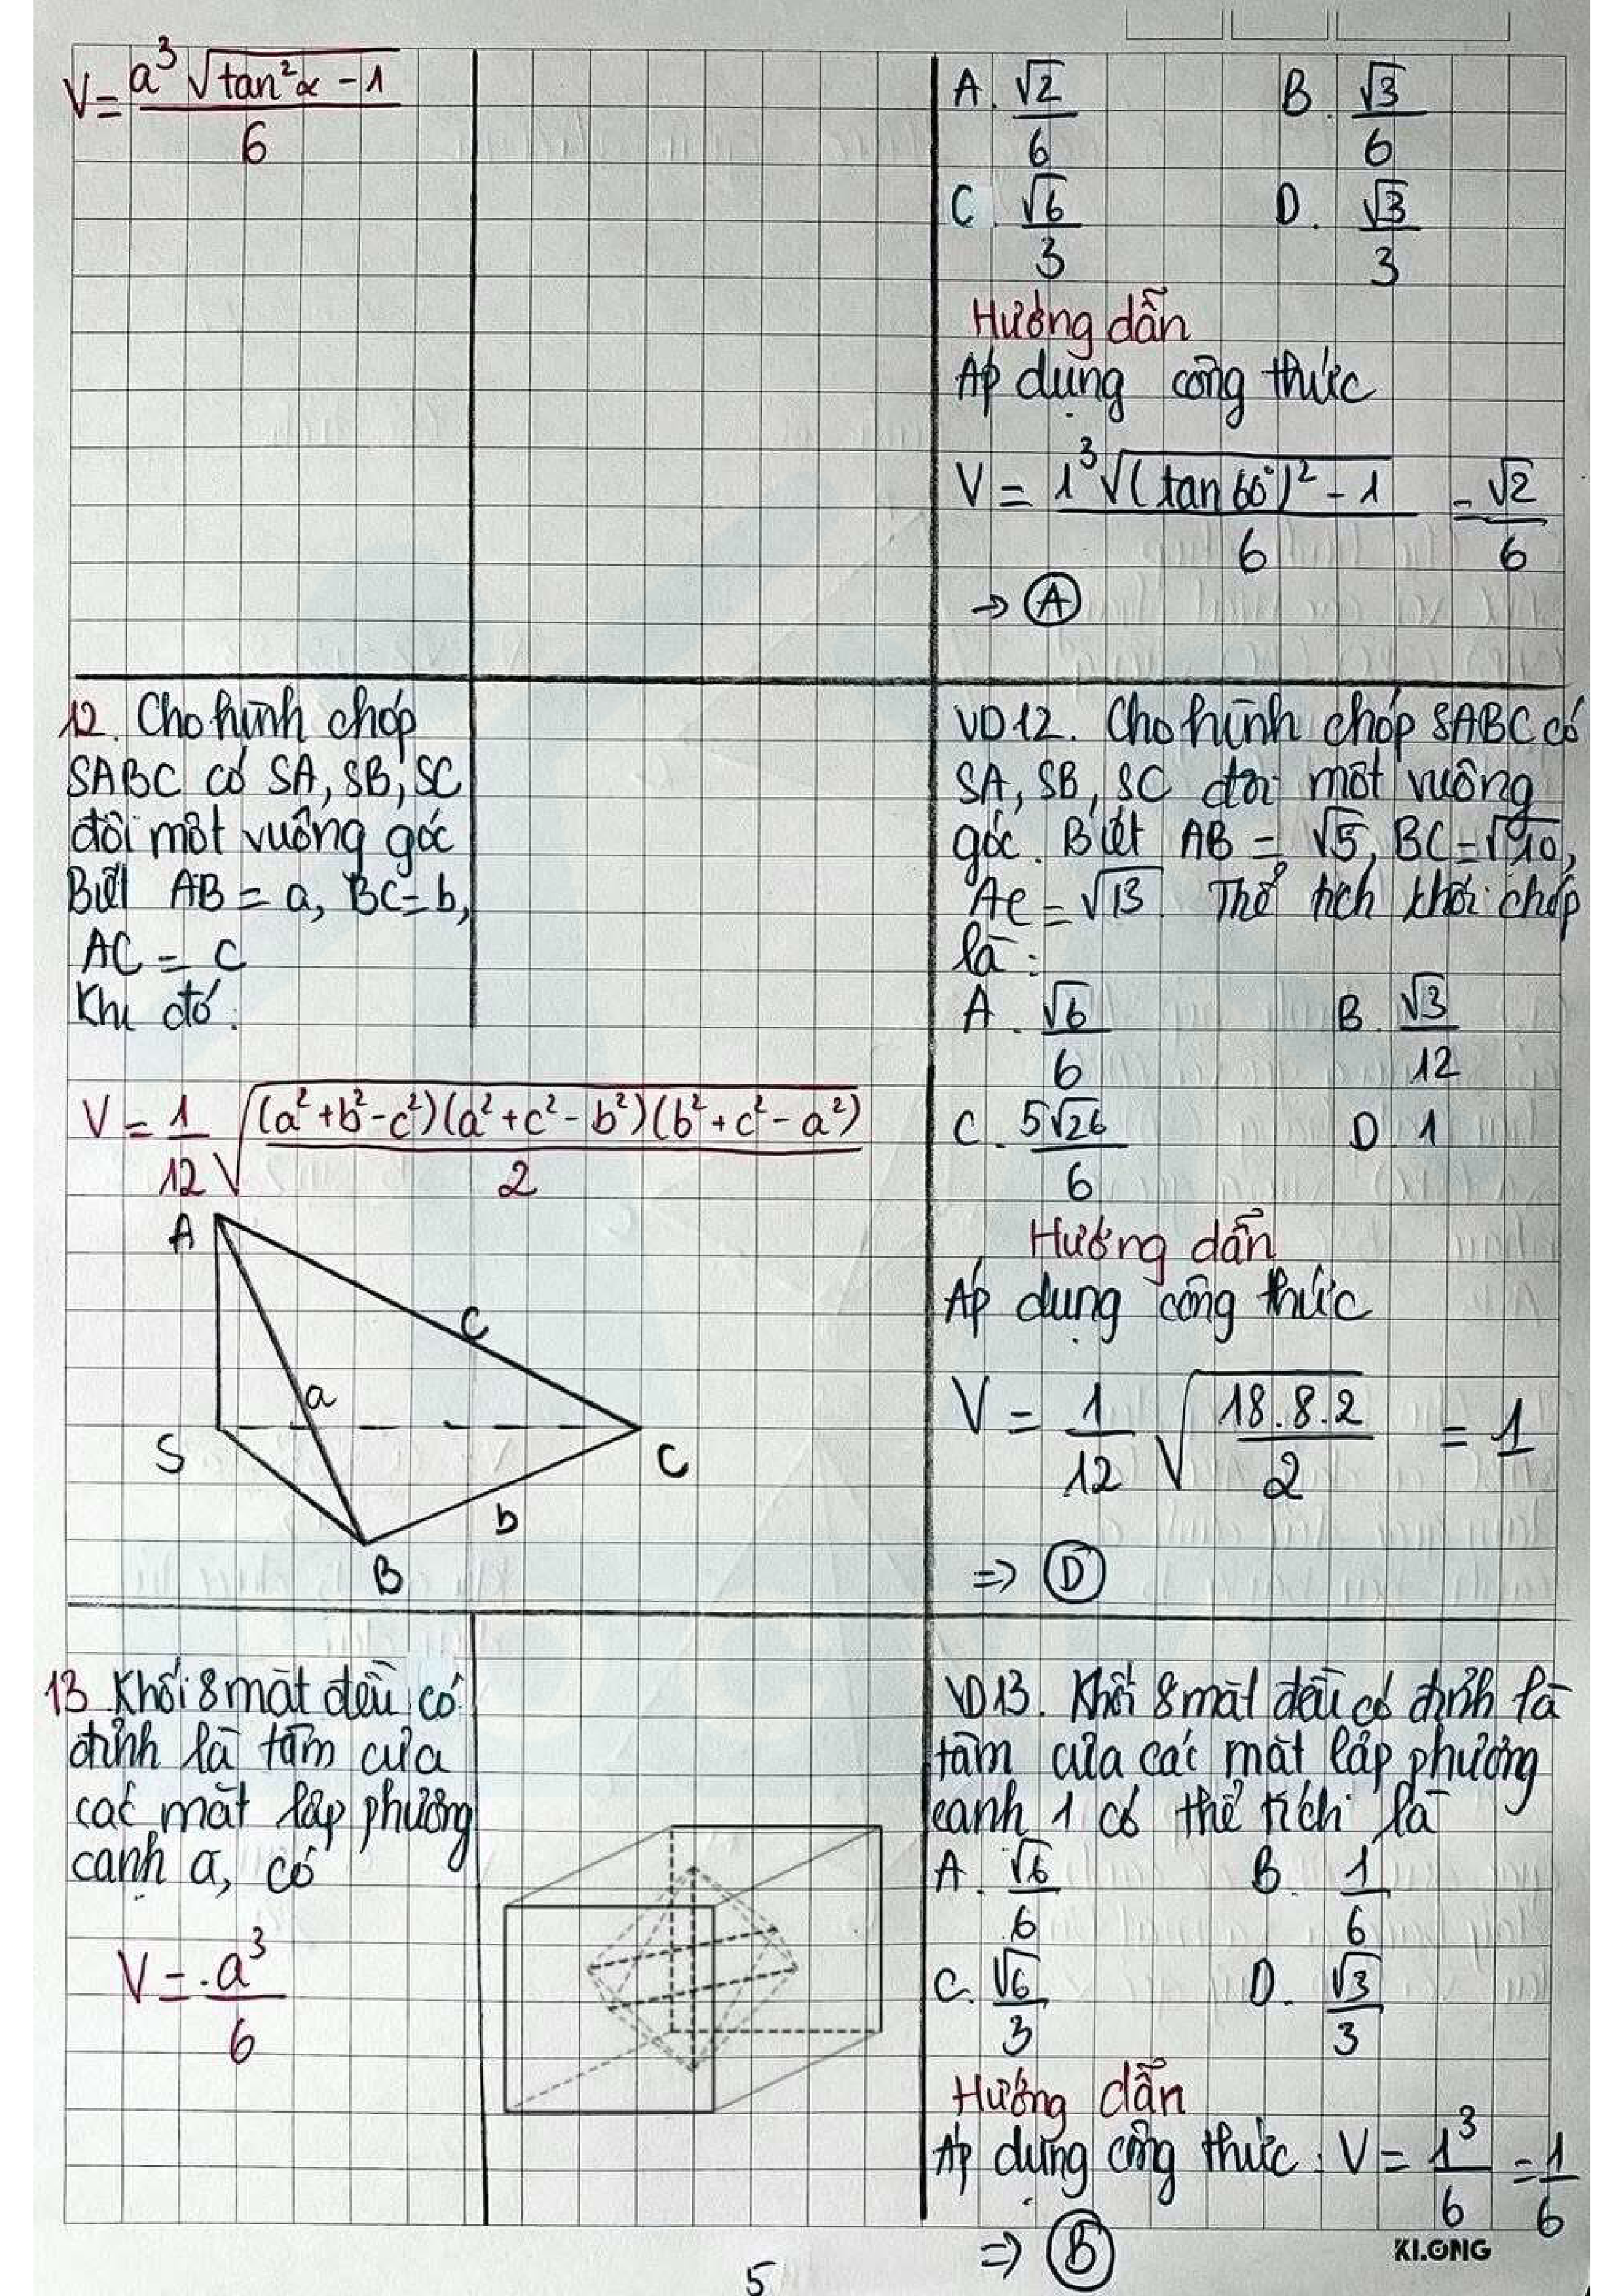 V = a³√(tan²α - 1) / 6
A. √2/6 B. √3/6
C. √6/3 D. √3/3
Hướng dẫn
Áp dụng công thức
V = 1³√((tan 60°)² - 1) / 6 = √2/6
→ Ⓐ
12. Cho hình chóp
SABC có SA, SB, SC
đôi một vuông góc
Biết AB = a, BC = b,
AC = c
Khi đó.
V = 1/12 √((a² + b² - c²)(a² + c² - b²)(b² + c² - a²) / 2)
A
c
a
S
C
b
B
VD12. Cho hình chóp SABC có
SA, SB, SC đôi một vuông
góc. Biết AB = √5, BC = √10,
AC = √13. Thể tích khối chóp
là:
A. √6/6 B. √3/12
C. 5√26/6 D. 1
Hướng dẫn
Áp dụng công thức
V = 1/12 √(18.8.2 / 2) = 1
⇒ Ⓓ
13. Khối 8 mặt đều có
đỉnh là tâm của
các mặt lập phương
cạnh a, có
V = a³/6
VD13. Khối 8 mặt đều có đỉnh là
tâm của các mặt lập phương
cạnh 1 có thể tích là
A. √6/6 B. 1/6
C. √6/3 D. √3/3
Hướng dẫn
Áp dụng công thức: V = 1³/6 = 1/6
⇒ Ⓑ
KLONG
5